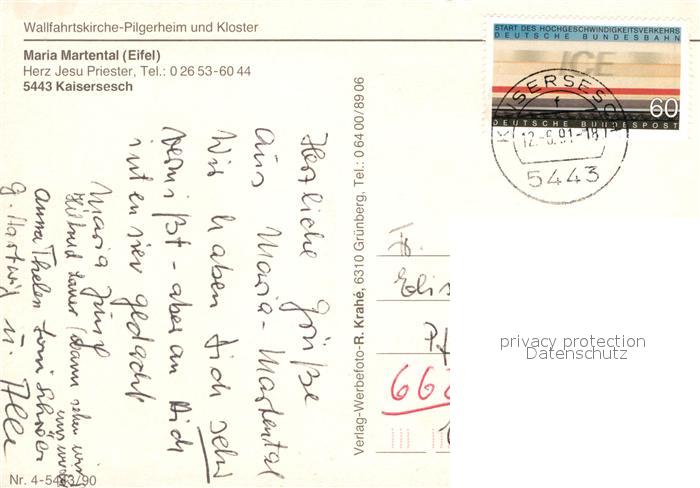 Wallfahrtskirche-Pilgerheim und Kloster
Maria Martental (Eifel)
Herz Jesu Priester, Tel.: 0 26 53-60 44
5443 Kaisersesch
START DES HOCHGESCHWINDIGKEITSVERKEHRS
DEUTSCHE BUNDESBAHN
ICE
60
DEUTSCHE BUNDESPOST
KAISERSESCH
f
12.-6.91-18
5443
Herzliche Grüße
aus Maria-Martental
Wir haben Dich sehr
vermißt - aber an Dich
intensiv gedacht
Maria Jüng
(wann sehen wir
uns wieder
Anna Thelen Toni
G. Hartwig u. Alle
Verlag-Werbefoto-R. Krahé, 6310 Grünberg, Tel.: 0 64 00/89 06
Fr.
Elis
662
privacy protection
Datenschutz
Nr. 4-5443/90